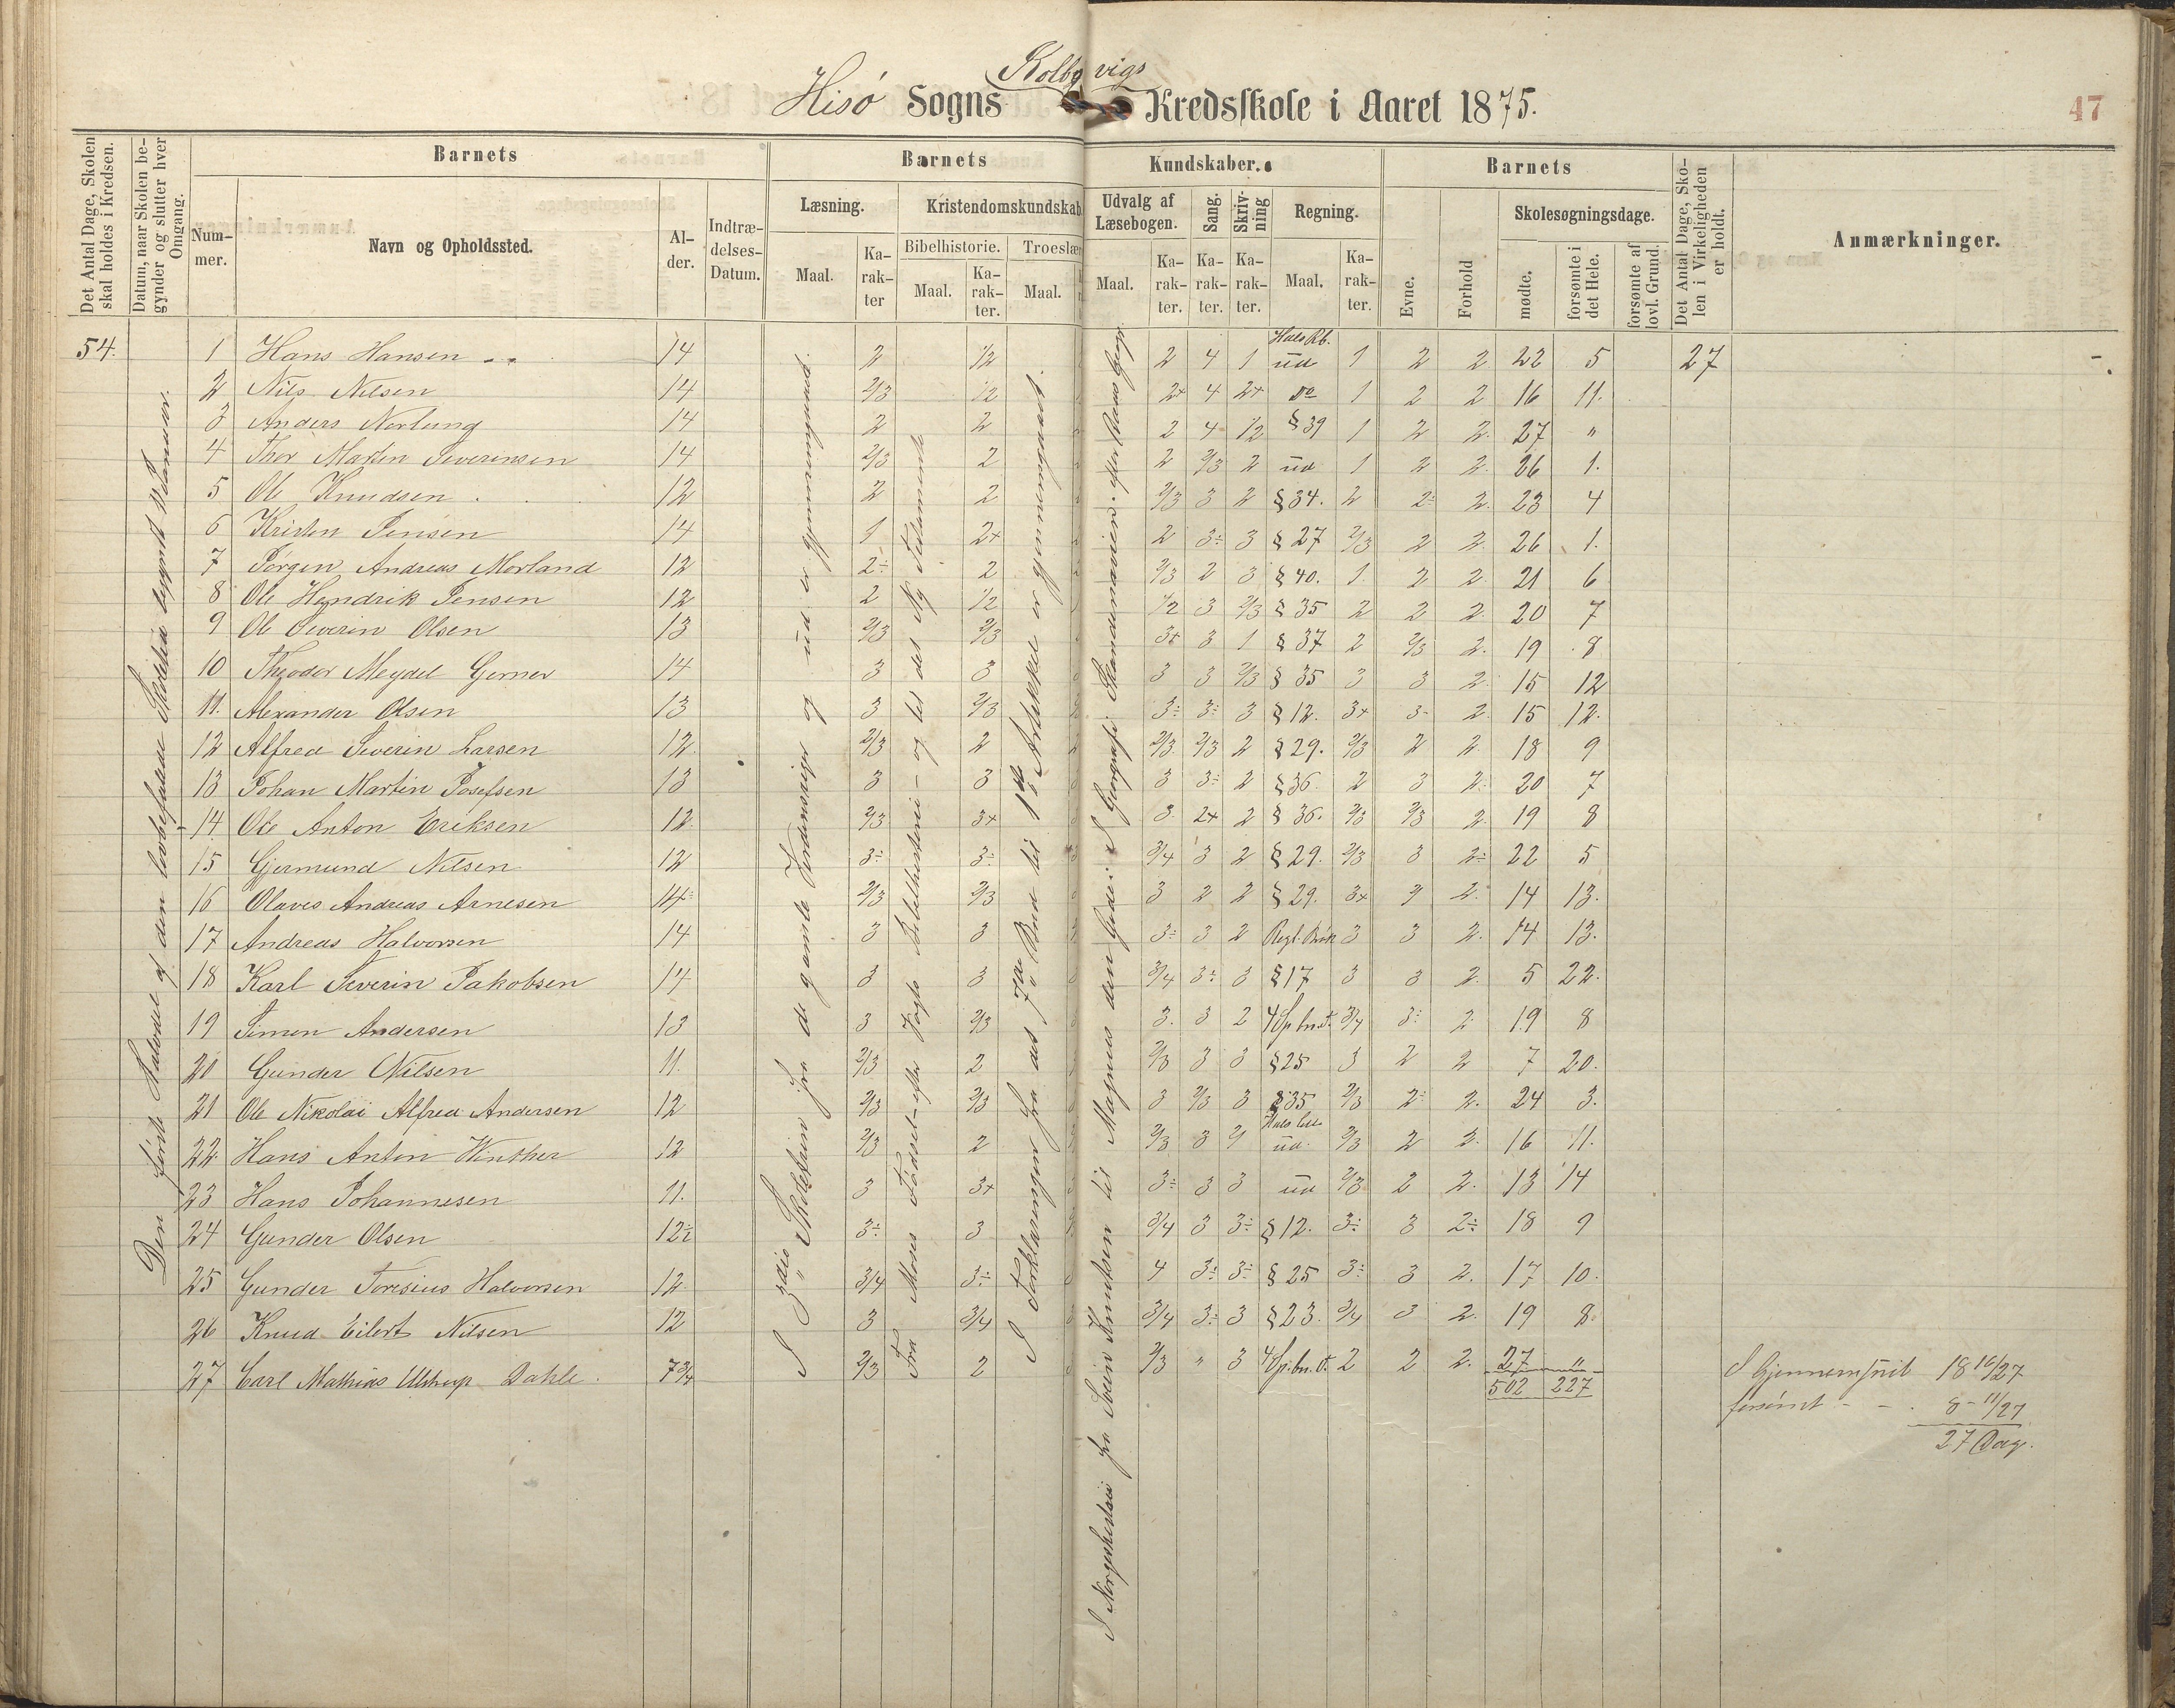 Kolbgvigs
Hisø Sogns Kredsskole i Aaret 1875.
47
Det Antal Dage, Skolen skal holdes i Kredsen.
Datum, naar Skolen begynder og slutter hver Omgang.
Barnets
Barnets
Kundskaber.
Barnets
Nummer.
Navn og Opholdssted.
Alder.
Indtrædelses-Datum.
Læsning.
Kristendomskundskab
Udvalg af Læsebogen.
Sang.
Skrivning
Regning.
Evne.
Forhold
Skolesøgningsdage.
Det Antal Dage, Skolen i Virkeligheden er holdt.
Anmærkninger.
Maal.
Karakter
Bibelhistorie.
Maal.
Karakter.
Troeslær
Maal.
Maal.
Karakter.
Karakter.
Karakter.
Maal.
Karakter.
mødte.
forsømte i det Hele.
forsømte af lovl. Grund.
54. 1 Hans Hansen 14 2 1/2 2 4 1 ud 1 2 2 22 5 27
2 Nils Nilsen 14 2/3 1/2 2+ 4 2+ do 1 2 2 16 11.
3 Anders Norlung 14 2 2 2 4 1/2 §39 1 2 2. 27 "
4 Thor Martin Severinsen 14 2/3 2 2 2/3 2 ud 1 2 2. 26 1.
5 Ole Knudsen 12 2 2 2/3 3 2 §34. 2 2÷ 2. 23 4
6 Kristen Jensen 14 1 2+ 2 3÷ 3 §27 2/3 2 2. 26 1.
7 Jørgen Andreas Morland 12 2÷ 2 2/3 2 3 §40. 1. 2 2. 21 6
8 Ole Hendrik Jensen 12 2 1/2 1/2 3 2/3 §35 2 2 2. 20 7
9 Ole Severin Olsen 13 2/3 2/3 3+ 3 1 §37 2 2/3 2. 19 8
10 Theodor Meydel Gerner 14 3 3 3 3 2/3 §35 3 3 2. 15 12
11. Alexander Olsen 13 3 2/3 3÷ 3÷ 3 §12. 3+ 3÷ 2. 15 12.
12 Alfred Severin Larsen 12 2/3 2 2/3 2/3 2 §29. 2/3 2 2. 18 9
13 Johan Martin Josefsen 13 3 3 3 3÷ 2 §36. 2 3 2. 20 7
14 Ole Anton Eriksen 12 2/3 3+ 3 2+ 2 §36. 2/3 2/3 2. 19 8
15 Gjermund Nilsen 12 3÷ 3÷ 3/4 3 2 §29. 2/3 3 2÷ 22 5
16 Olaves Andreas Arnesen 14 2/3 2/3 3 2 2 §29. 3+ 2. 14 13.
17 Andreas Halvorsen 14 3 3 3÷ 3 2 3 3 2. 14 13.
18 Karl Severin Jakobsen 14 3 3 3/4 3÷ 3 §17 3 3 2. 5 22.
19 Simen Andersen 13 3 2/3 3. 3 2 3/4 3÷ 2 19 8
20 Gunder Nilsen 11. 2/3 2 2/3 3 3 §25 3 2 2 7 20.
21 Ole Nikolai Alfred Andersen 12 2/3 2/3 3 2/3 3 §35 2/3 2÷ 2. 24 3.
22. Hans Anton Winther 12 2/3 2 2/3 3 ud. 2/3 2 2. 16 11.
23 Hans Johannesen 11. 3 3+ 3÷ 3 3 ud 2/3 2 2. 13 14
24 Gunder Olsen 12 3÷ 3 3/4 3 3÷ §12. 3÷ 3 2÷ 18 9
25 Gunder Toresius Halvorsen 12 3/4 3÷ 4 3÷ 3÷ §25 3÷ 3 2. 17 10.
26 Knud Eilert Nilsen 12 3 3/4 3/4 3÷ 3 §23. 3/4 3 2. 19 8.
27 Carl Mathias Ulstrup Dahle. 7 3/4 2/3 2 2/3 " 3 2 2 2. 27 "
502 227
I Gjennemsnit 18 16/27
forsømt - - 8 - 11/27
27 Dag.
Den første Halvdel af den lovbefalede Skoletid begyndt Januar.
I 3die Skoletrin fra de gamle Nordmænd og ud er gjennemgaaet.
Fra Moses Fødsel - efter Vogts Bibelhistorie - og til det Ny Testamente
I Forklaringen fra det 7de Bud til 1ste Artikkel er gjennemgaaet
I Norgeshistorie fra Svein Knutsen til Magnus den Gode: I Geografi: Skandinavien efter